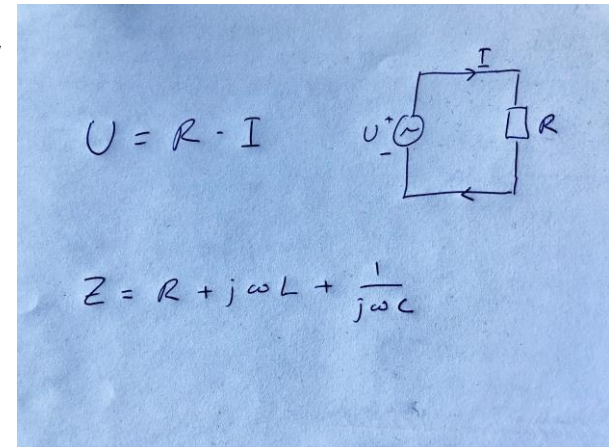 U = R · I
I
U + ~ -
R
Z = R + jωL + 1/jωC